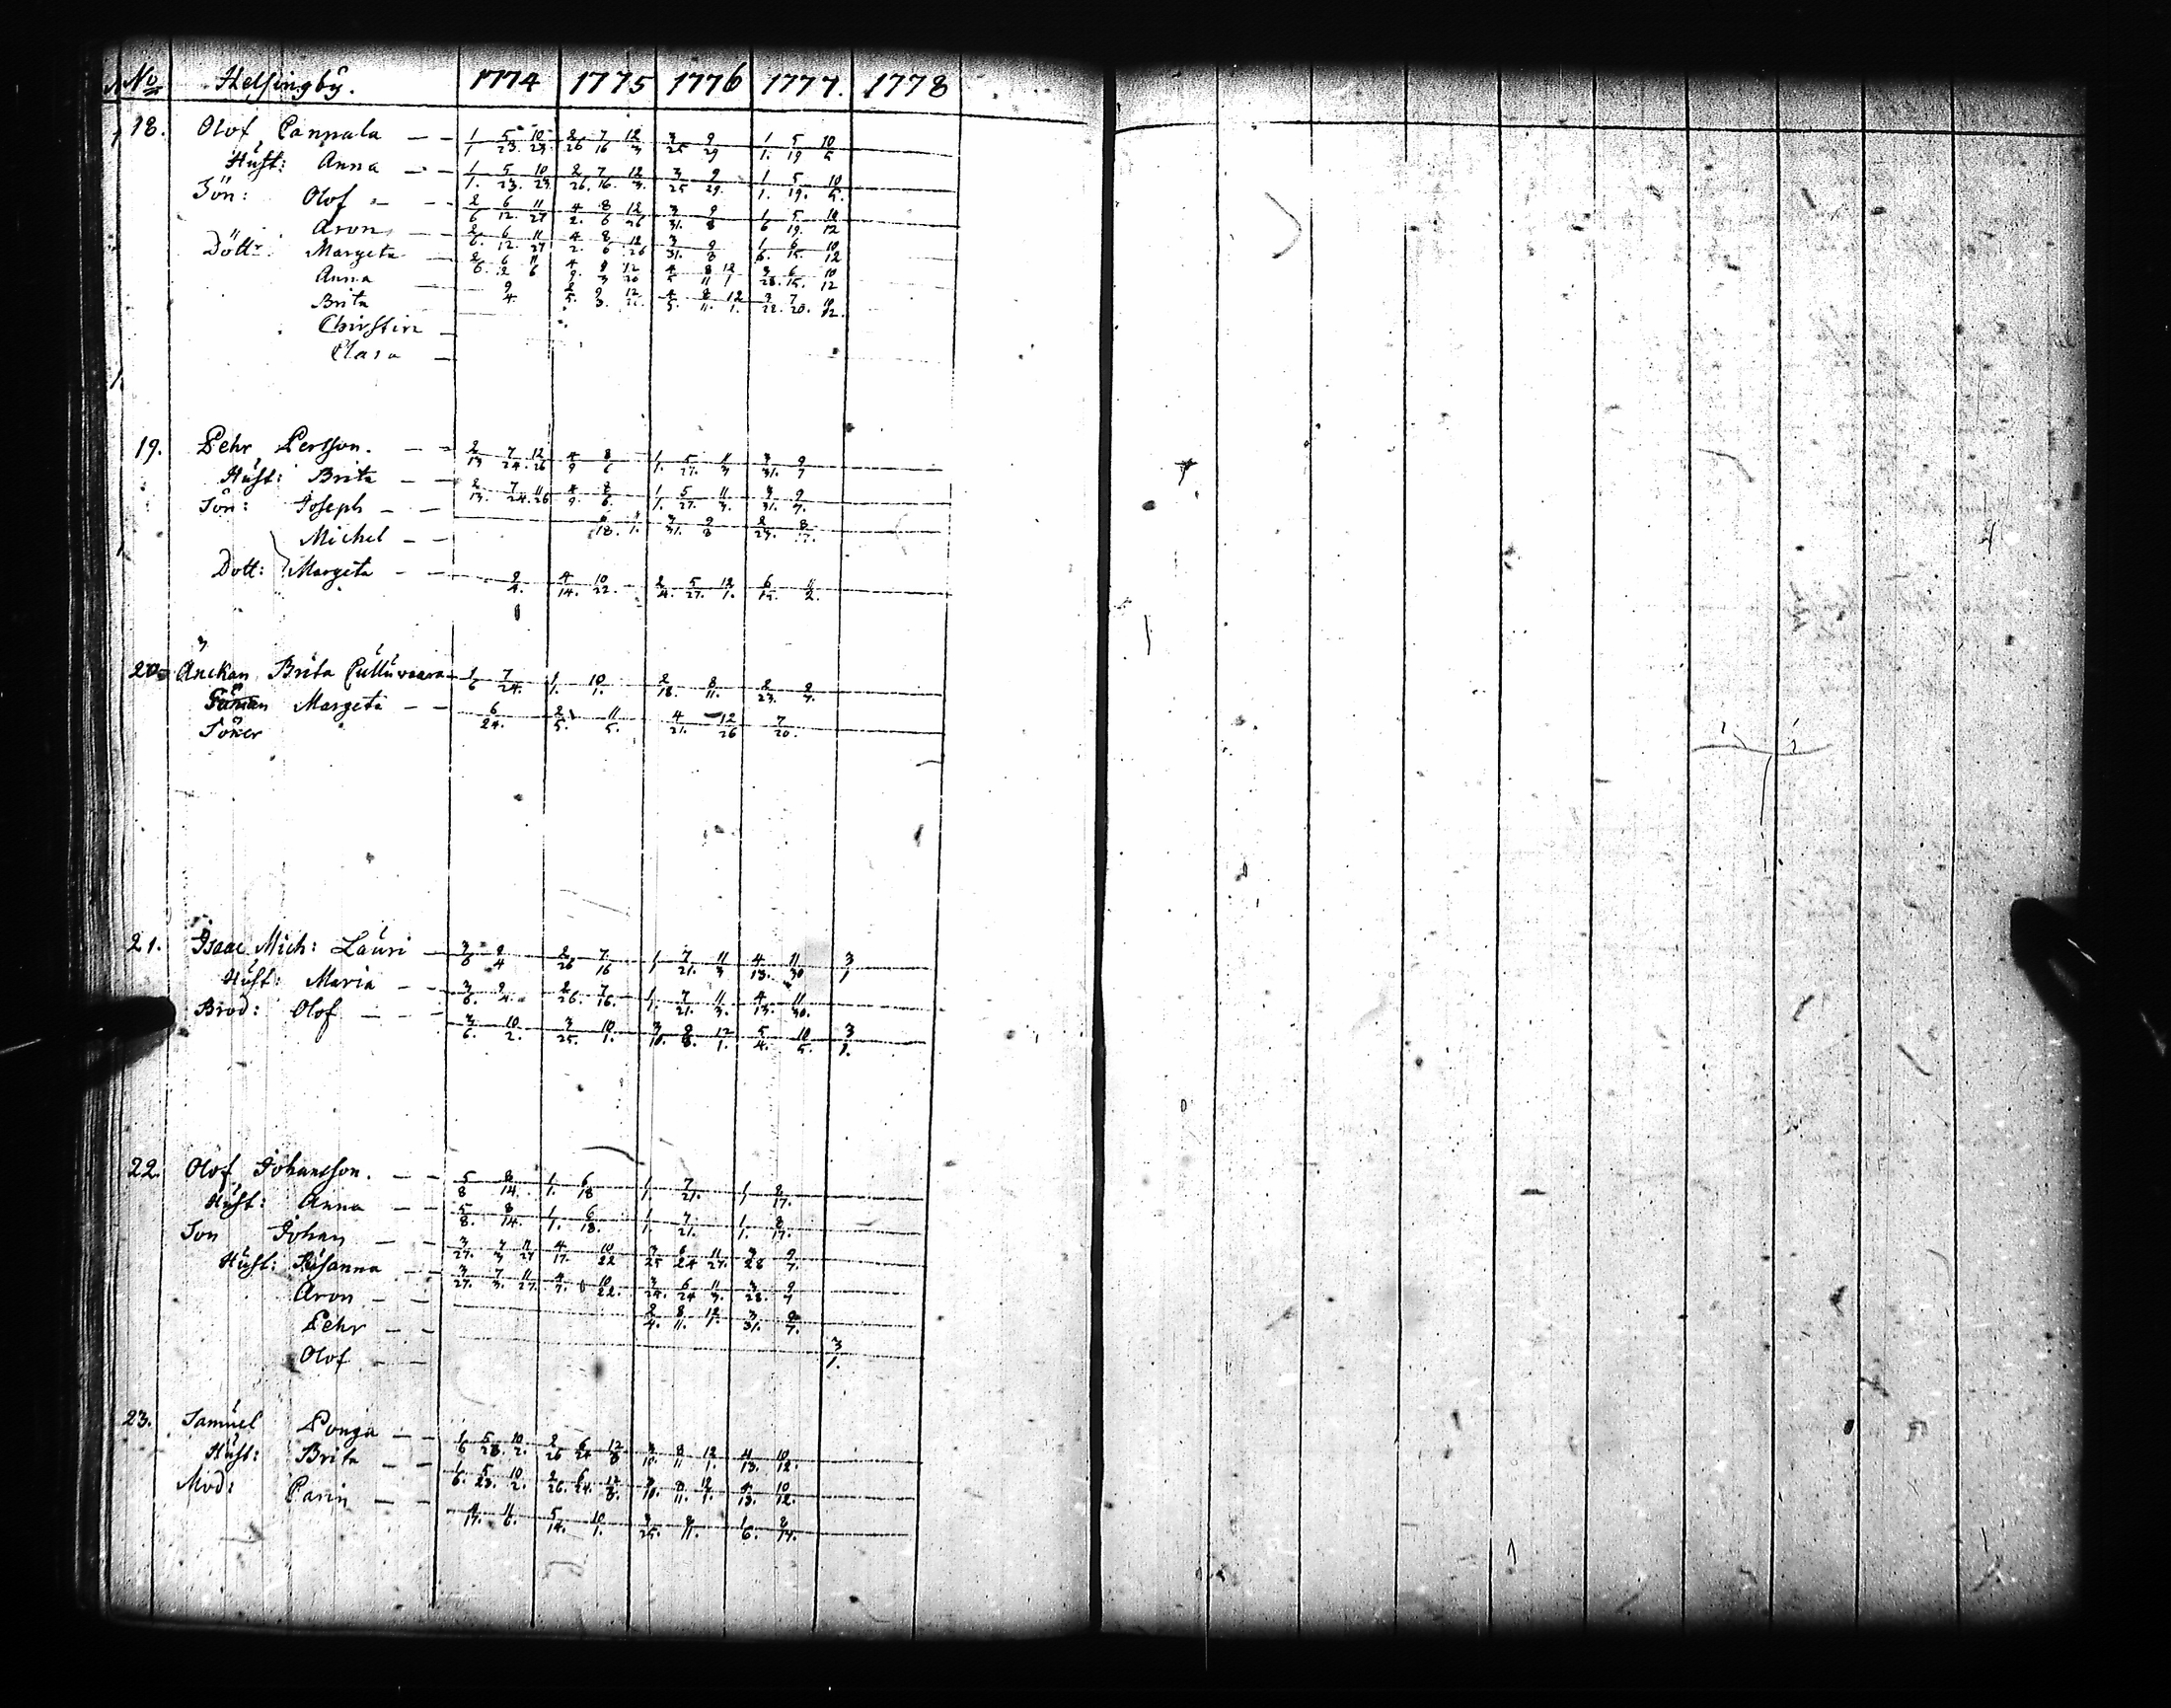 No Helsingby. 1774 1775 1776 1777. 1778
18. Olof Canpala 1/1 5/23. 10/23. 2/26 7/16 12/3 3/25 9/29 1/1. 5/19 10/5
Hust: Anna 1/1. 5/23. 10/23. 2/26. 7/16. 12/3. 3/25 9/29. 1/1. 5/19. 10/5.
Son: Olof 2/6 6/12. 11/27 4/2. 8/6 12/26 3/31. 9/8 1/6 5/19. 10/12
Aron 2/6. 6/12. 11/27 4/2. 8/6 12/26 3/31. 9/8 1/6. 6/15. 10/12
Döttr: Margeta
Anna
Brita
Christin
Clara
19. Pehr Persson. 2/13 7/24. 12/26 4/9 8/6 1/1. 5/27. 11/3 3/31. 9/7
Hust: Brita 2/13. 7/24. 11/26 4/9. 8/6. 1/1. 5/27. 11/3. 3/31. 9/7.
Son: Joseph
Michel
Dott: Margeta 9/4. 4/14. 10/22. 2/4. 5/27. 12/1. 6/15. 11/2.
20. Änckan Brita Culluvaara 1/6 7/24. 1/1. 10/1. 2/18. 8/11. 2/23. 9/7.
Margeta 6/24. 2/5. 11/5. 4/21. 12/26 7/20.
Söker
21. Isaac Mich: Lauri 3/6 9/4 2/26 7/16 1/1 7/21. 11/3 4/13. 11/30 3/1
Hust: Maria 3/6. 9/4. 2/26. 7/16. 1/1. 7/21. 11/3. 4/13. 11/30.
Brod: Olof 3/6. 10/2. 3/25. 10/1. 3/10. 8/8. 12/1. 5/4. 10/5. 3/1.
22. Olof Johansson. 5/8 8/14. 1/1. 6/18 1/1. 7/21. 1/1 8/17.
Hust: Anna 5/8. 8/14. 1/1. 6/18. 1/1. 7/21. 1/1. 8/17.
Son Johan 3/27. 7/3 11/27 4/17. 10/22 3/25 6/24 11/27. 3/28 9/7.
Hust: Susanna 3/27. 7/3. 11/27. 10/22. 3/24. 6/24 11/3. 3/28. 9/7
Aron 2/4. 8/11. 12/1. 3/31. 9/7.
Pehr
Olof 3/1.
23. Samuel Ponga 1/6 5/23. 10/2. 2/26 6/24 12/3 3/10. 8/11 12/1. 4/13. 10/12.
Hust: Brita 1/6. 5/23. 10/2. 2/26. 6/24. 12/3. 3/10. 8/11. 12/1. 4/13. 10/12.
Mod: Carin 4/17. 11/6. 5/14. 10/1. 3/25. 8/11. 1/6. 8/17.